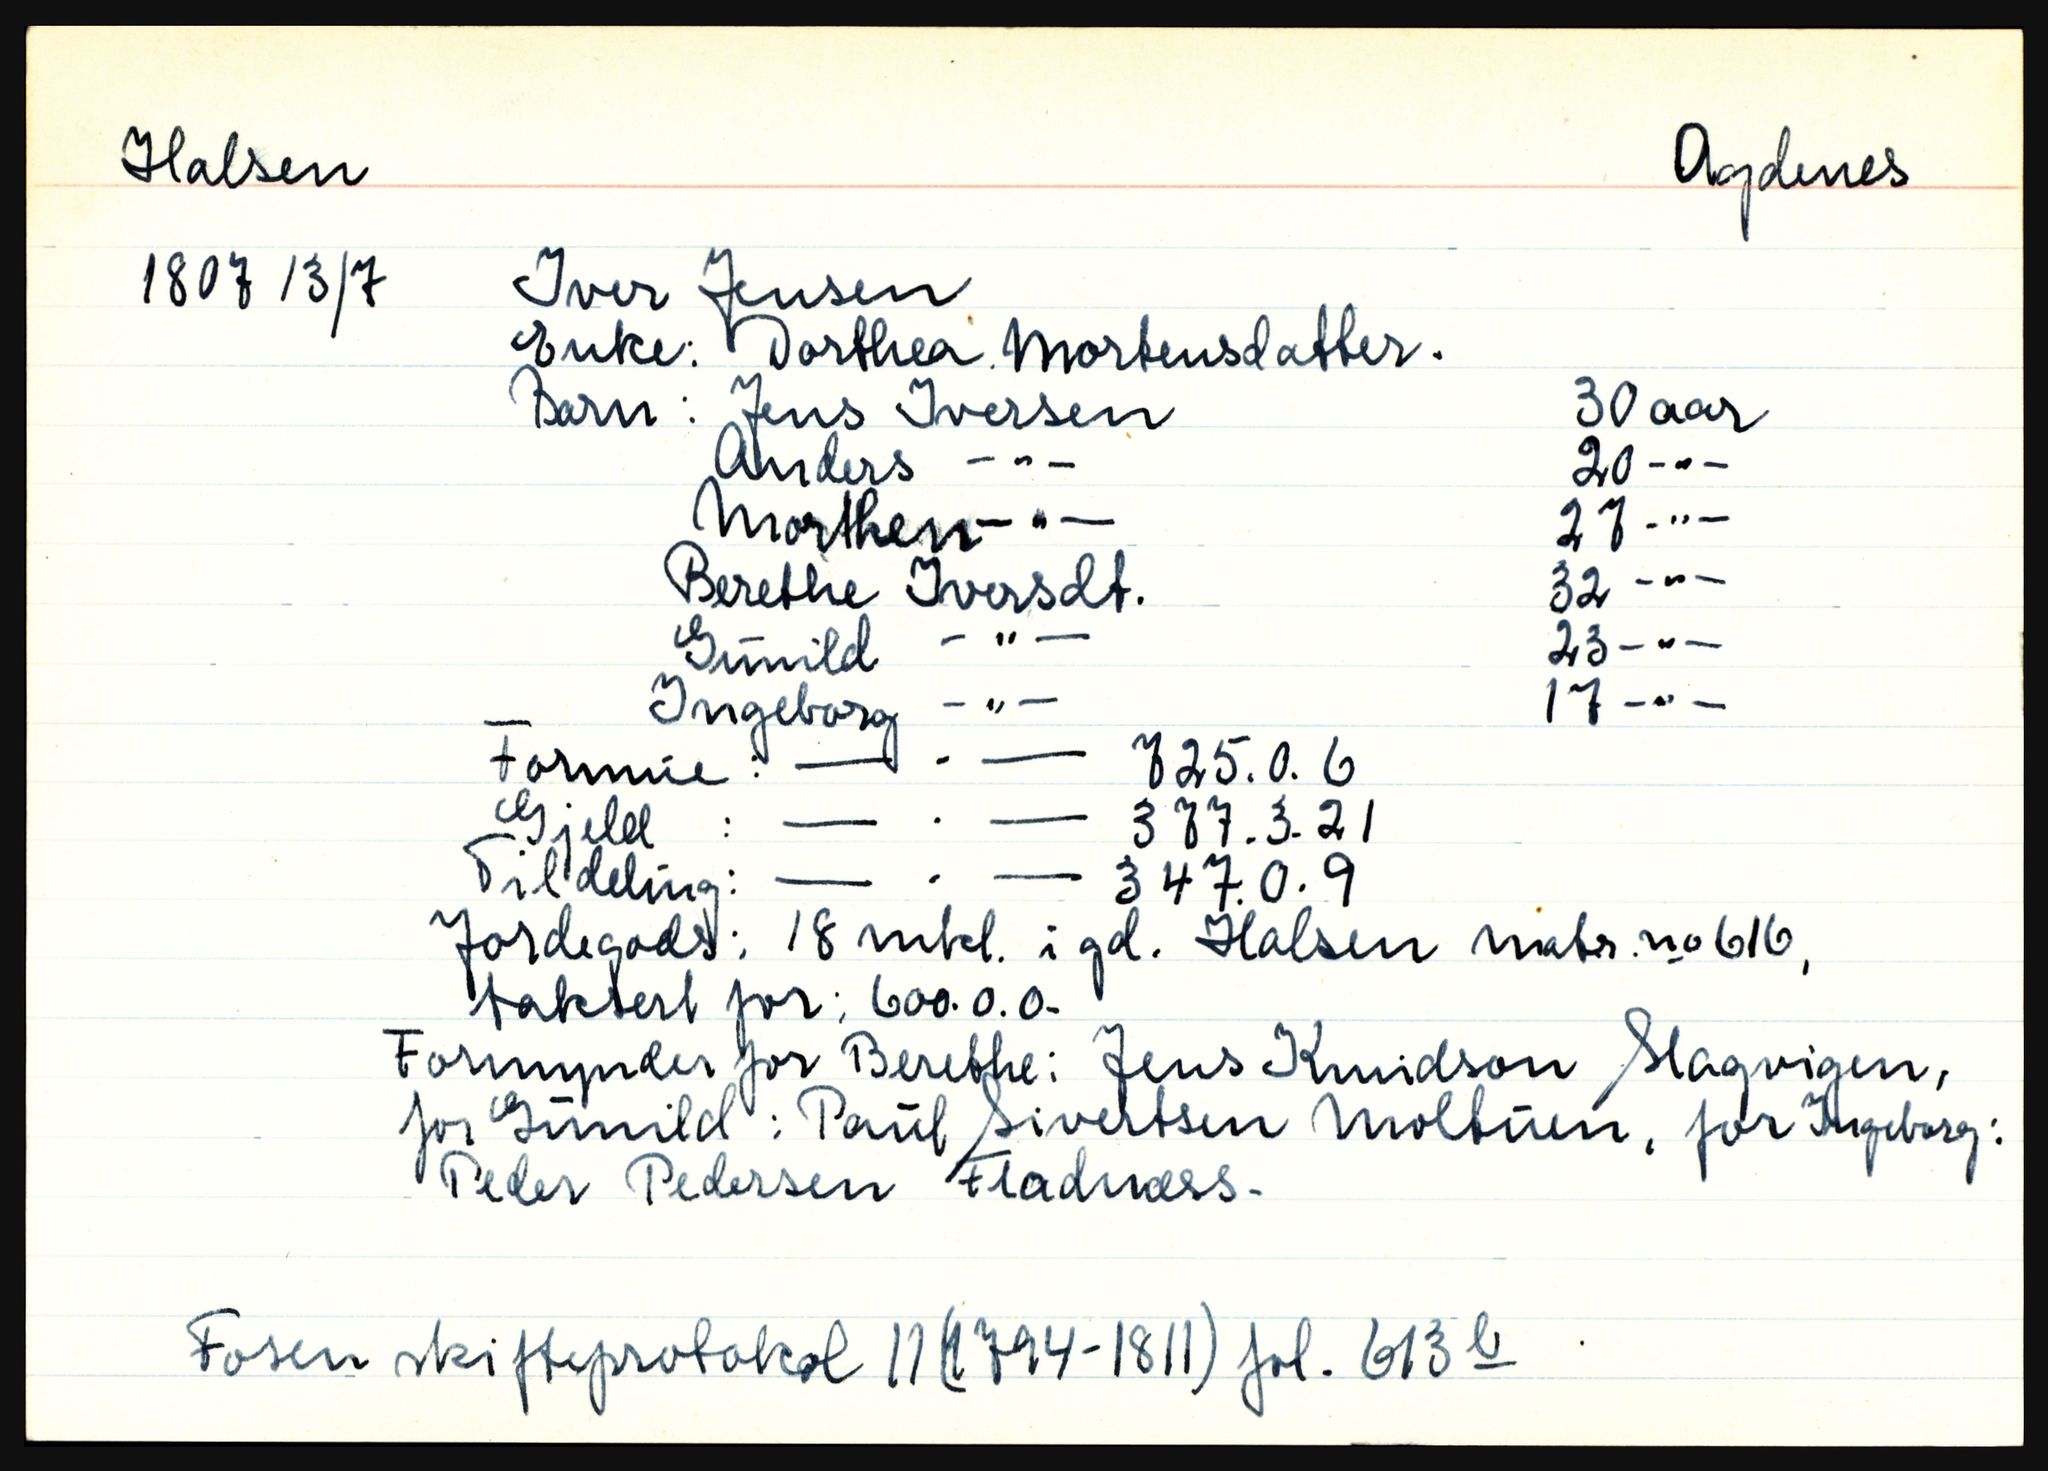 Halsen Agdenes
1807 13/7 Iver Jensen
Enke: Dorthea Mortensdatter.
Barn: Jens Iversen 30 aar
Anders -"- 20 -"-
Morthen -"- 27 -"-
Berethe Iversdt. 32 -"-
Gunild -"- 23 -"-
Ingeborg -"- 17 -"-
Formue: — . — 725.0.6
Gjeld : — . — 377.3.21
Til deling: — . — 347.0.9
Jordegods: 18 mkl. i gd. Halsen matr. no 616,
taksert for: 600.0.0-
Formynder for Berethe: Jens Knudson Slagvigen,
for Gunild: Paul Sivertsen Moltuen, for Ingeborg:
Peder Pedersen Fladnæss.
Fosen skifteprotokol 11 (1794-1811) fol. 613 b